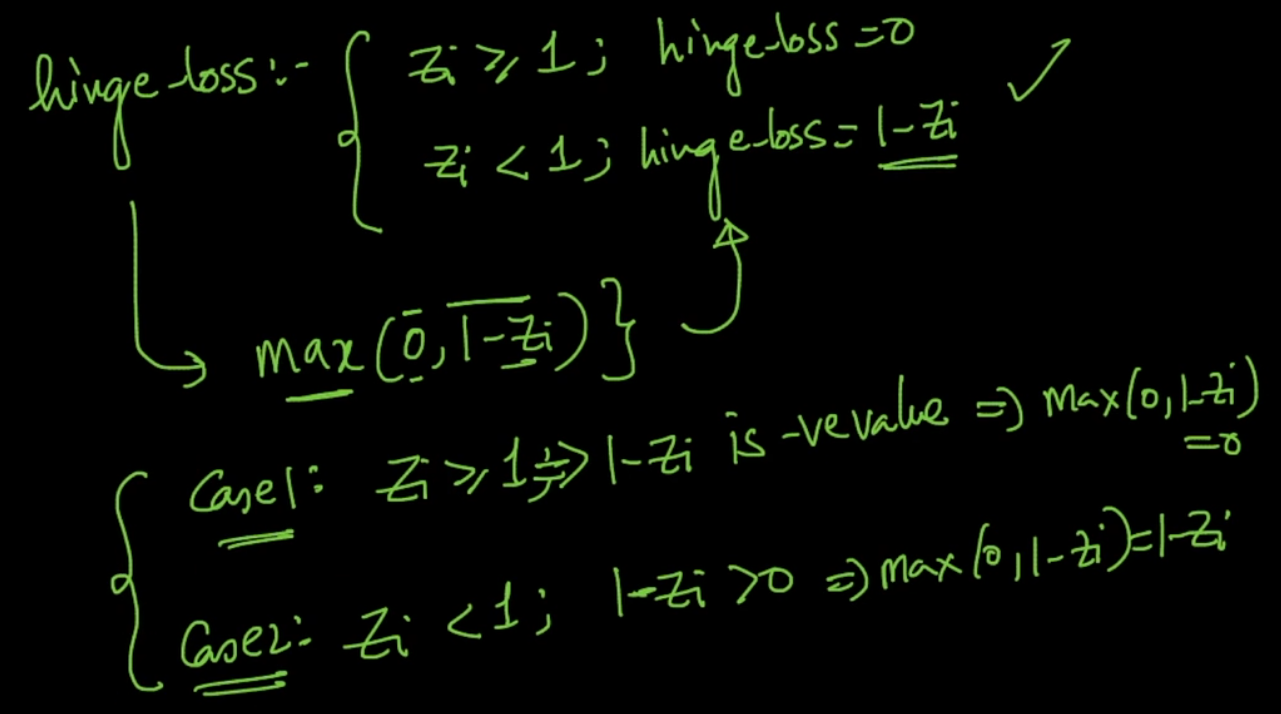 hinge-loss:- { Zi ≥ 1; hinge-loss = 0
Zi < 1; hinge-loss = 1-Zi ✓
max(0, 1-Zi)}
{ Case1: Zi ≥ 1 ⇒ 1-Zi is -ve value ⇒ max(0, 1-Zi)
=0
Case2: Zi < 1; 1-Zi > 0 ⇒ max(0, 1-Zi) = 1-Zi